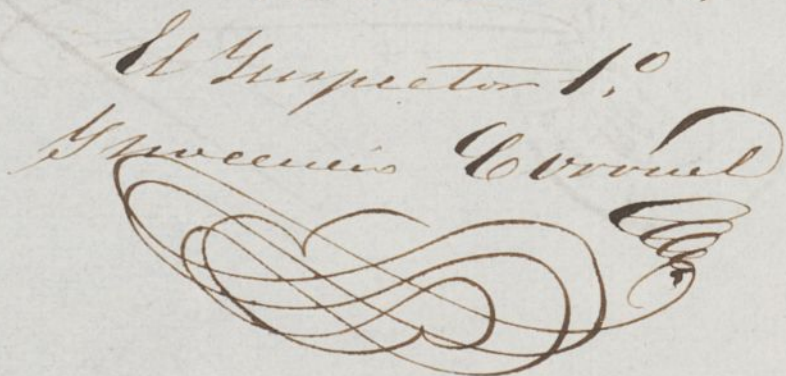 El Ynspector 1.º
Ynocencio Coronel